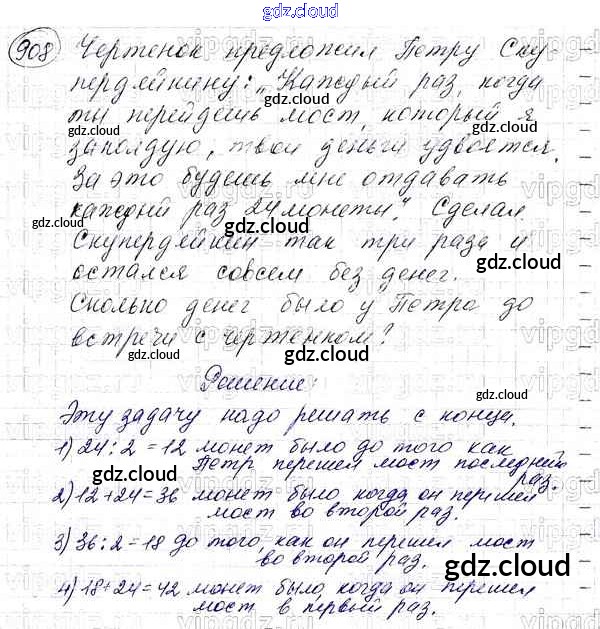 gdz.cloud
908 Чертенок предложил Петру Ску-
пердяйкину: „Каждый раз, когда
ты перейдешь мост, который я
заколдую, твои деньги удвоятся.
За это будешь мне отдавать
каждый раз 24 монеты". Сделал
Скупердяйкин так три раза и
остался совсем без денег.
Сколько денег было у Петра до
встречи с чертенком?
Решение:
Эту задачу надо решать с конца.
1) 24 : 2 = 12 монет было до того как
Петр перешел мост последний
раз.
2) 12 + 24 = 36 монет было, когда он перешел
мост во второй раз.
3) 36 : 2 = 18 до того, как он перешел мост
во второй раз.
4) 18 + 24 = 42 монет было, когда он перешел
мост в первый раз.